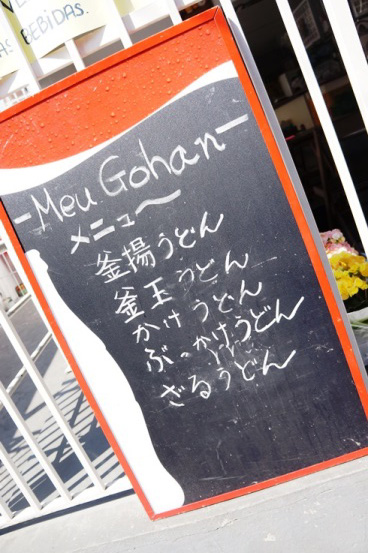 BEBIDAS.
-Meu Gohan-
メニュ〜
釜揚うどん
釜玉うどん
かけうどん
ぶっかけうどん
ざるうどん